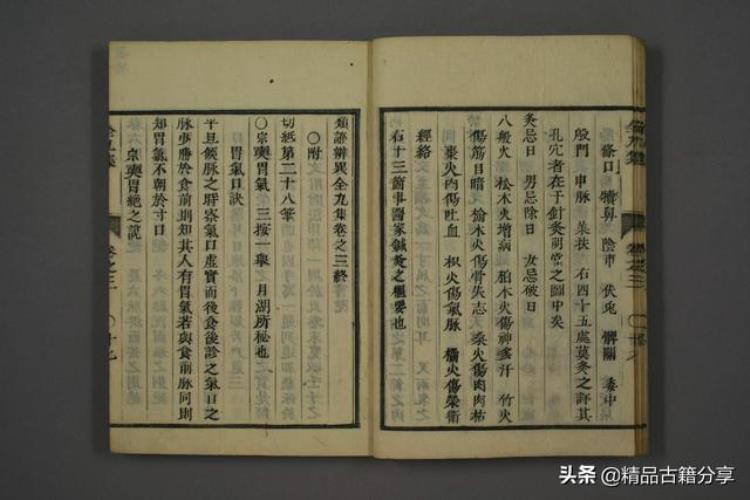 條口 犢鼻 陰市 伏兔 髀關 委中
殷門 申脉 葉扶 右四十五處莫灸之詳其
孔穴者在于針灸明堂之圖中矣
灸忌日 男忌除日 女忌破日
八般火 松木火增病 柏木火傷神多汗 竹火
傷筋目暗 榆木火傷骨失志 桑火傷肉肉枯
棗火內傷吐血 枳火傷氣脉 橘火傷榮衛
經絡
右十三箇事醫家鍼灸之樞要也
類證辨異全九集卷之三終
○附
切紙第二十八筆
○宗奭胃氣 三按一舉 月湖所秘也
胃氣口訣
平旦候脉之時察氣口虛實而後食後診之氣口之
脉少勝於食前則知其人有胃氣若與食前脉同則
知胃氣不朝於寸口
宗奭胃絕之說
全九集
卷之三
○十九
头条 @精品古籍分享